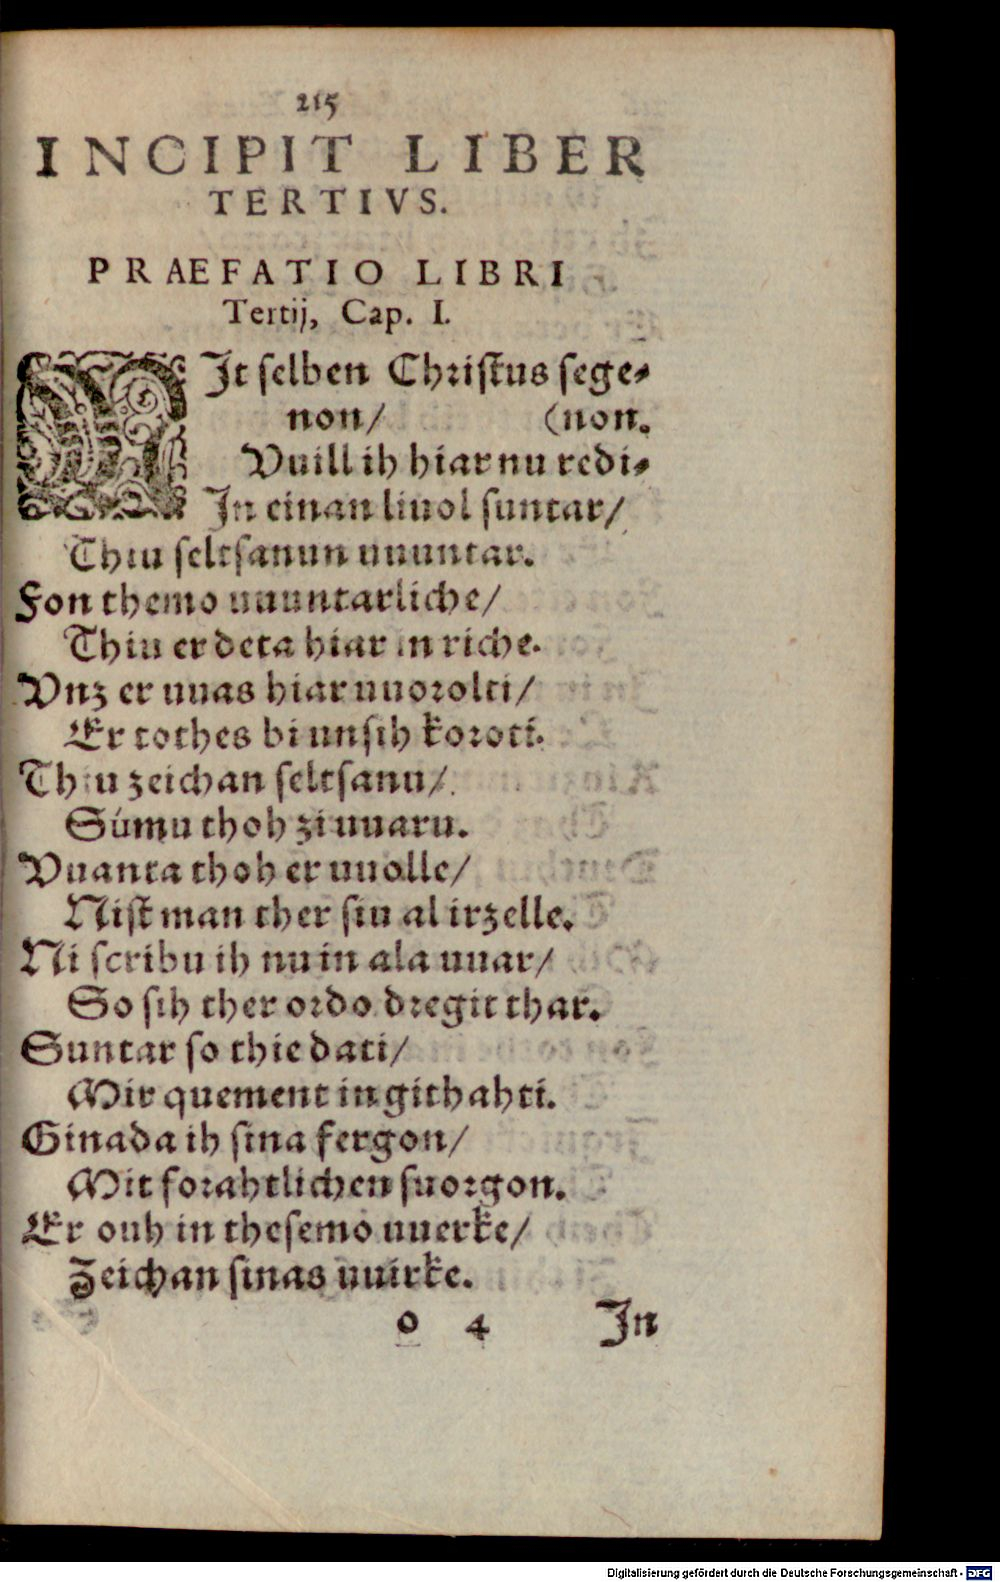 215
INCIPIT LIBER
TERTIVS.
PRAEFATIO LIBRI
Tertij, Cap. I.
MJt selben Christus sege⸗
non/ (non.
Vuill ih hiar nu redi⸗
Jn einan liuol suntar/
Thiu seltsanun uuuntar.
Fon themo uuuntarliche/
Thiu er deta hiar in riche.
Vnz er uuas hiar uuorolti/
Er tothes bi unsih koroti.
Thiu zeichan seltsanu/
Súmu thoh zi uuaru.
Vuanta thoh er uuolle/
Nist man ther siu al irzelle.
Ni scribu ih nu in ala uuar/
So sih ther ordo dregit thar.
Suntar so thie dati/
Mir quement in githahti.
Ginada ih sina fergon/
Mit forahtlichen suorgon.
Er ouh in thesemo uuerke/
Zeichan sinas uuirke.
o 4 Jn
Digitalisierung gefördert durch die Deutsche Forschungsgemeinschaft - DFG